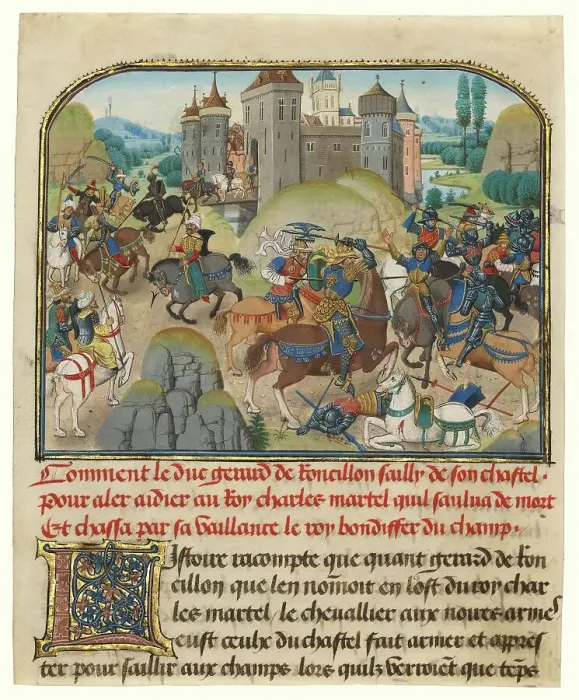 Comment le duc gerard de Roncillon sailly de son chastel.
Pour aler aidier au Roy charles martel quil saulua de mort
Et chassa par sa vaillance le roy bondiffer du champ.
LIstoire racompte que quant gerard de Ron
cillon que len nōmoit en lost du roy char
les martel, le chevallier aux noires armes
eust ceulx du chastel fait armer et appres
ter pour saillir aux champs lors quilz verroiēt que tēps